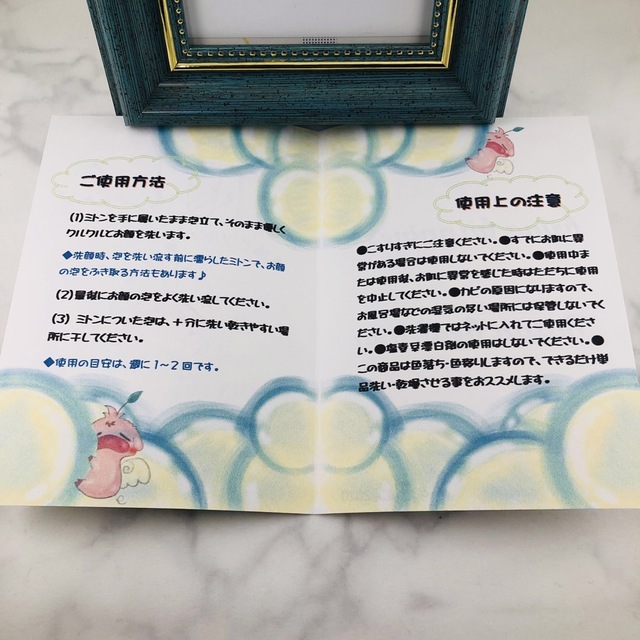 ご使用方法
(1)ミトンを手に履いたまま泡立て、そのまま優しく
クルクルとお顔を洗います。
◆洗顔時、泡を洗い流す前に濡らしたミトンで、お顔
の泡をふき取る方法もあります♪
(2)最後にお顔の泡をよく洗い流してください。
(3) ミトンについた泡は、十分に洗い乾きやすい場
所に干してください。
◆使用の目安は、週に1〜2回です。
使用上の注意
●こすりすぎにご注意ください。●すでにお肌に異
常がある場合は使用しないでください。●使用中ま
たは使用後、お肌に異常を感じた時はただちに使用
を中止してください。●カビの原因になりますので、
お風呂場などの湿気の多い場所には保管しないでく
ださい。●洗濯機ではネットに入れてご使用くださ
い。●塩素系漂白剤の使用はしないでください。●
この商品は色落ち・色移りしますので、できるだけ単
品洗い・乾燥させる事をおススメします。